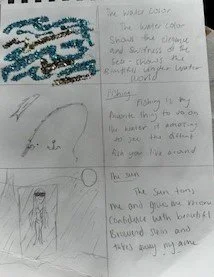 The Water Color
The Water color
Shows the elegance
and Swiftness of the
Sea - shows the
Beautiful under water
world
Fishing
Fishing is my
favorite thing to do on
the water is amazing
to see the diffrent
fish you live around
The sun
The Sun tans
me and gives me
confidence with beautiful
Browned skin and
takes away my acne